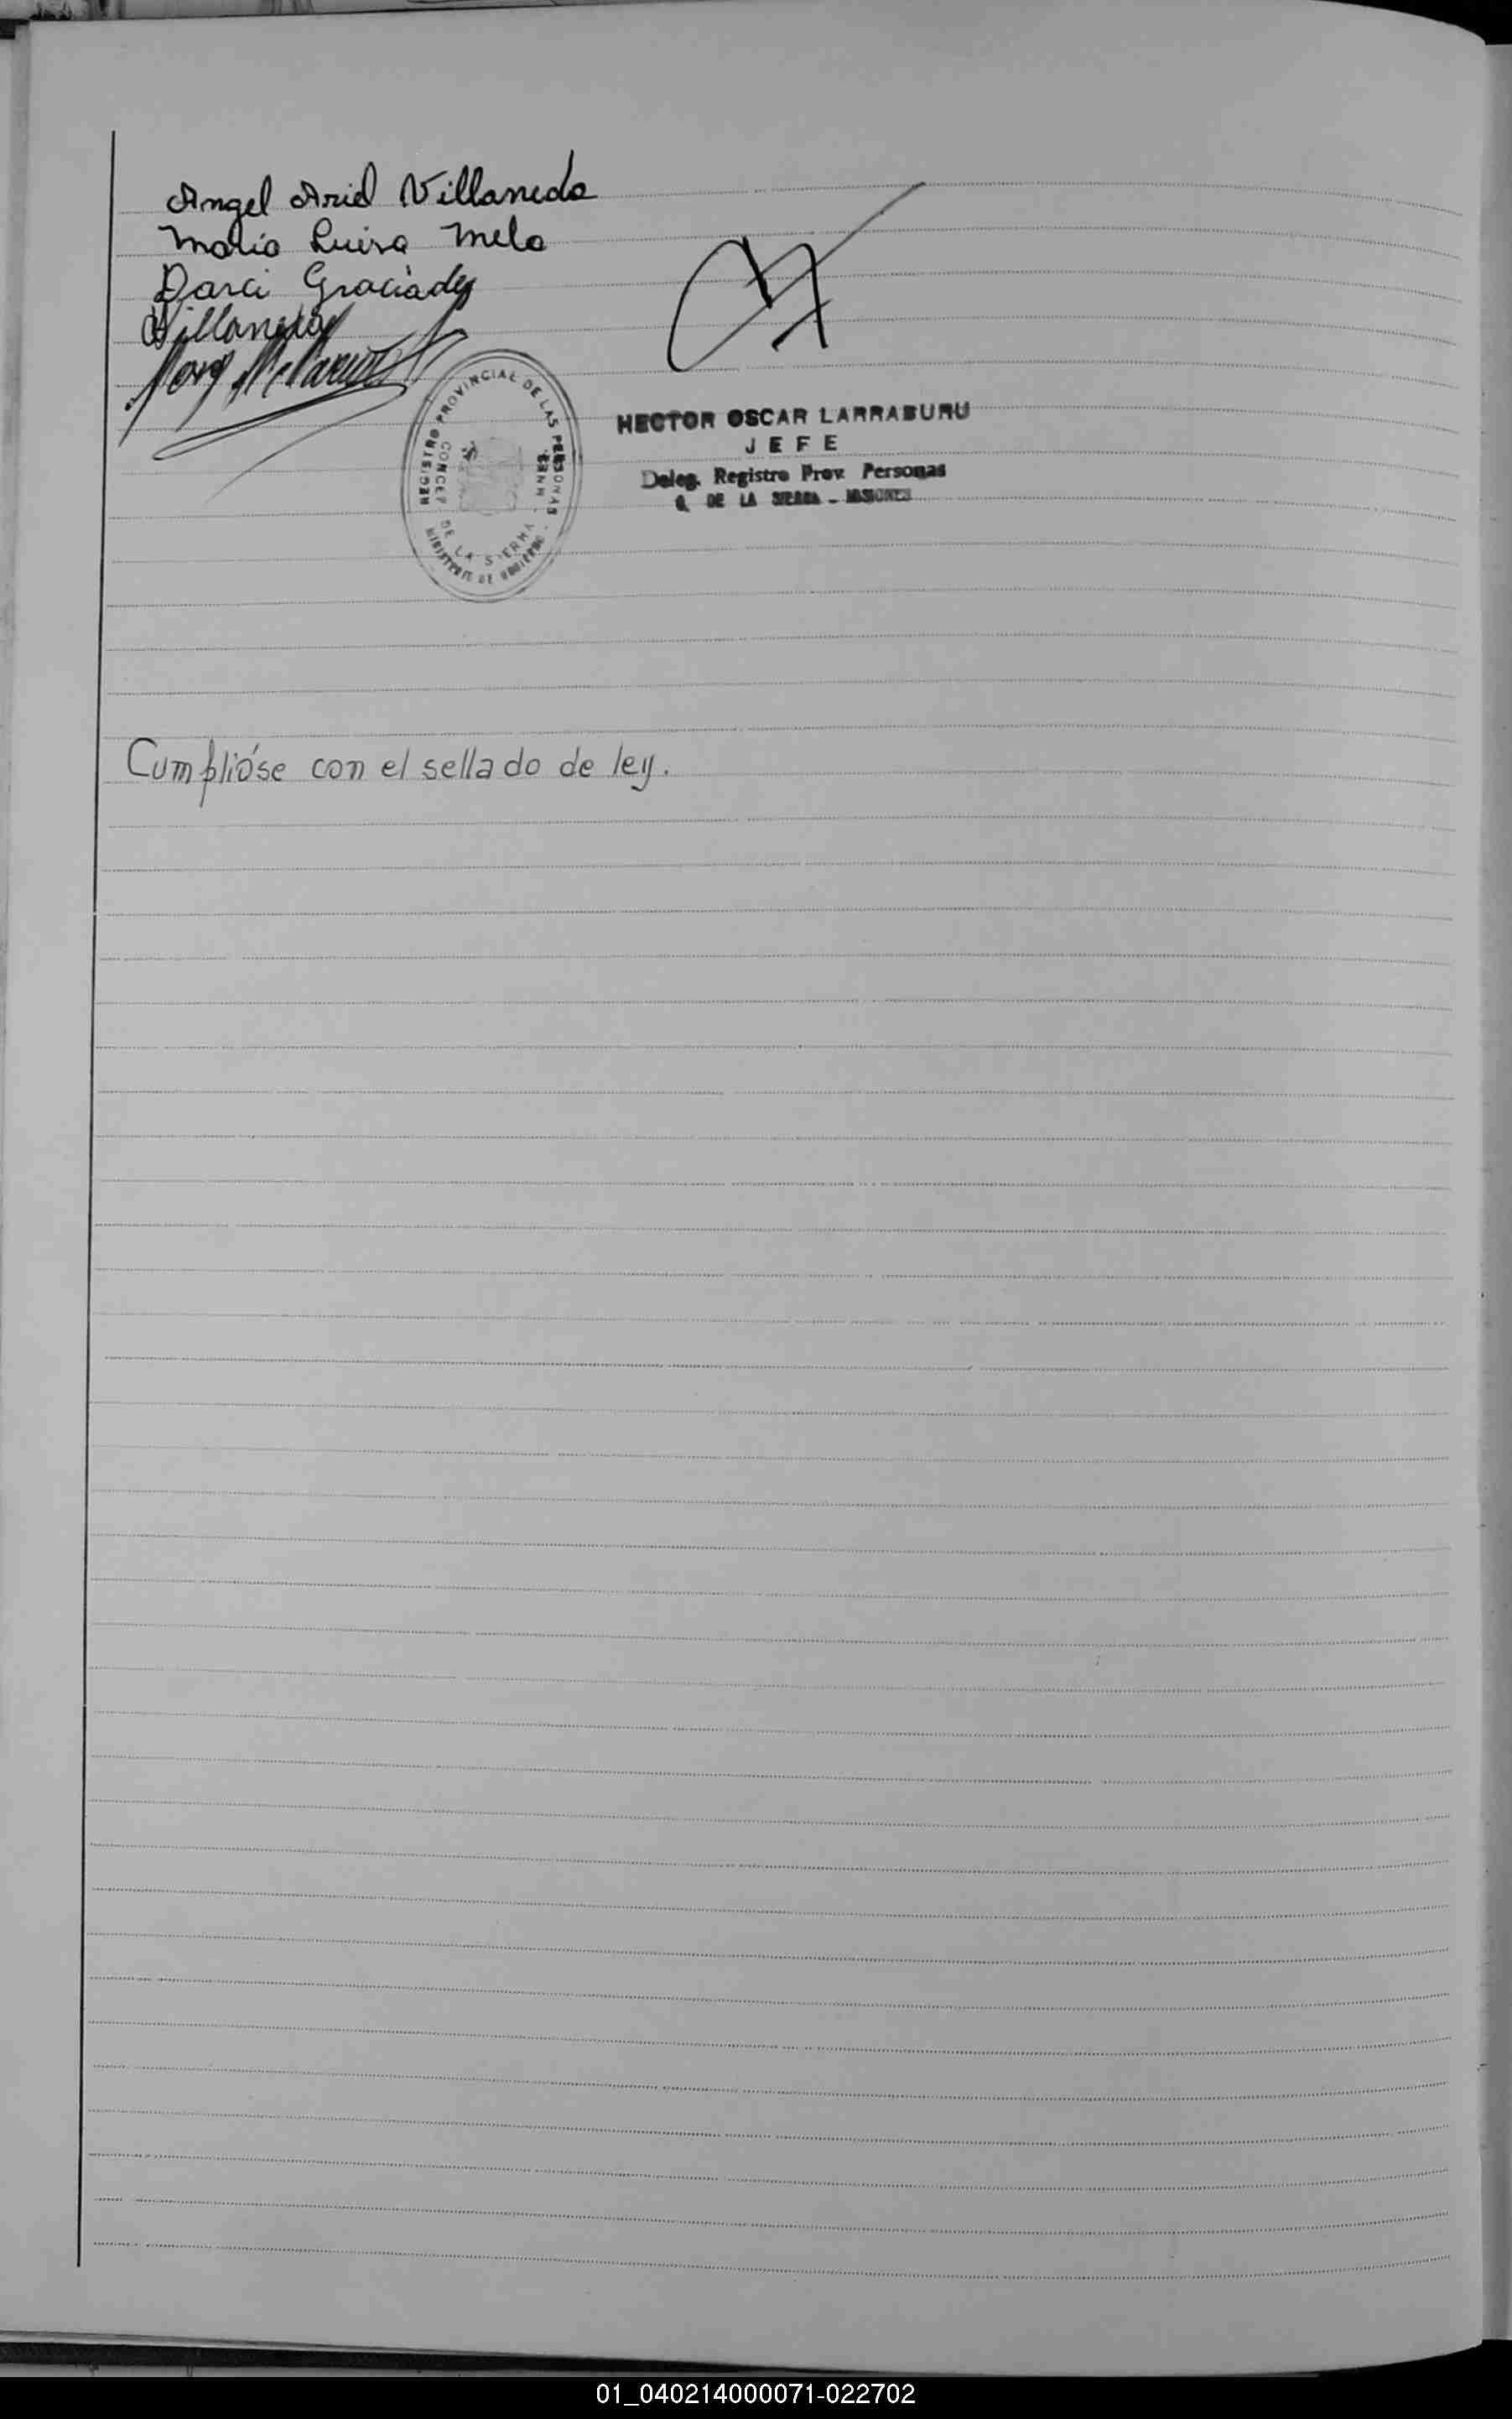 Angel Ariel Villaneda
Maria Luisa Melo
Darci Graciàdes
Villaneda
REGISTRO PROVINCIAL DE LAS PERSONAS
CONCEP. DE LA SIERRA
MINISTERIO DE GOBIERNO
HECTOR OSCAR LARRABURU
JEFE
Deleg. Registro Prov. Personas
C. DE LA SIERRA - MISIONES
Cumplióse con el sellado de ley.
01_040214000071-022702